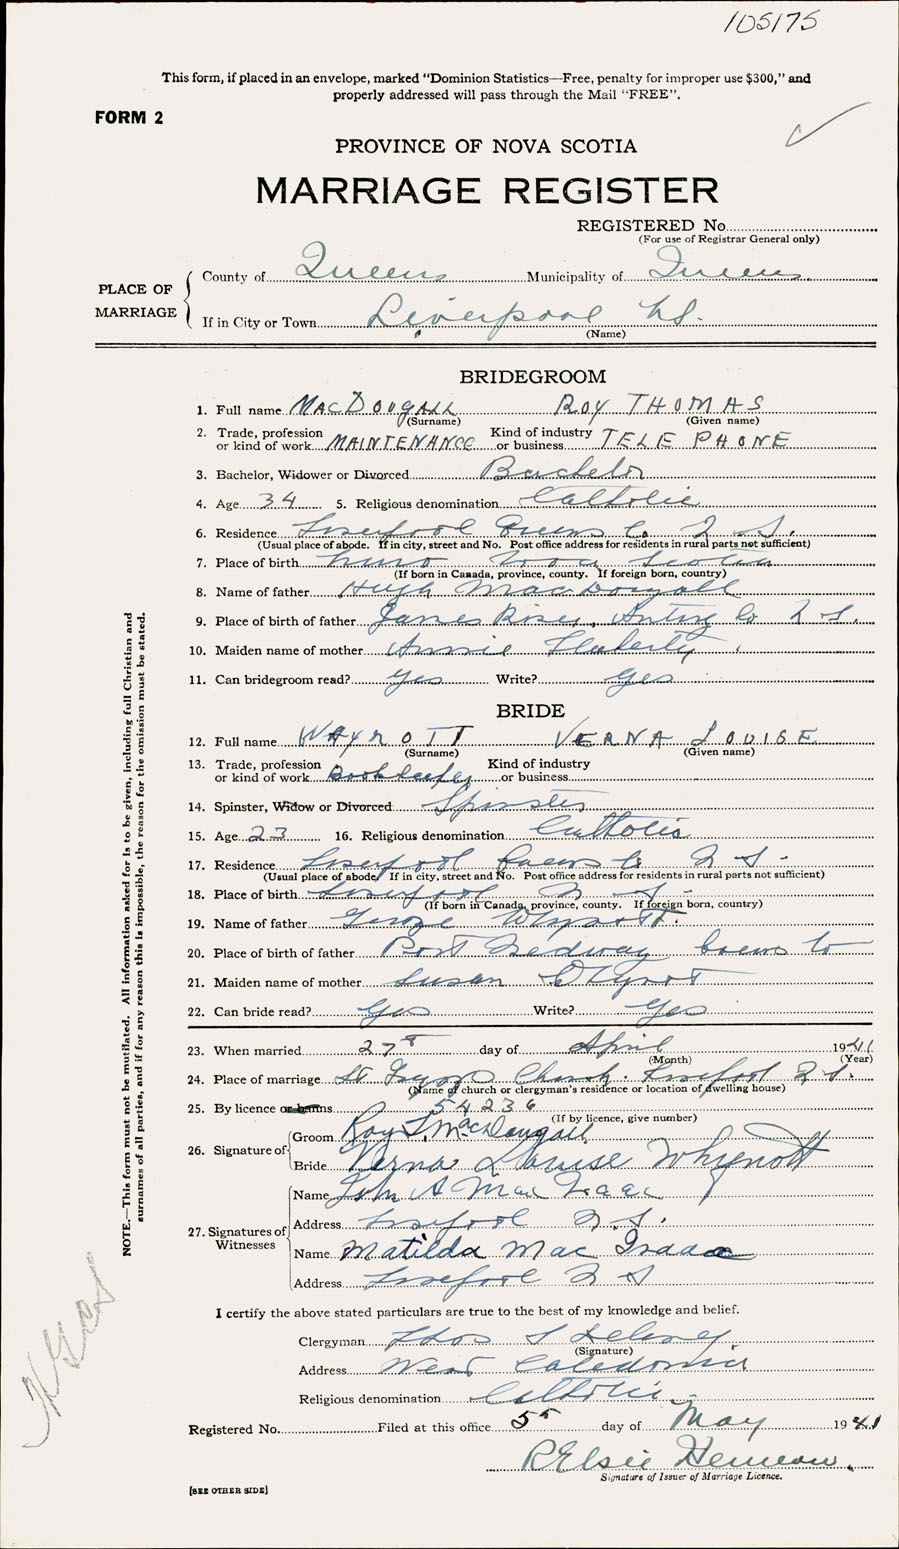 105175
This form, if placed in an envelope, marked "Dominion Statistics—Free, penalty for improper use $300," and
properly addressed will pass through the Mail "FREE".
FORM 2
PROVINCE OF NOVA SCOTIA
MARRIAGE REGISTER
REGISTERED No.
(For use of Registrar General only)
PLACE OF MARRIAGE
County of Queens Municipality of Queens
If in City or Town Liverpool N.S.
(Name)
BRIDEGROOM
1. Full name MACDOUGALL ROY THOMAS
(Surname) (Given name)
2. Trade, profession or kind of work MAINTENANCE Kind of industry or business TELEPHONE
3. Bachelor, Widower or Divorced Bachelor
4. Age 34 5. Religious denomination Catholic
6. Residence Liverpool Queens Co. N.S.
(Usual place of abode. If in city, street and No. Post office address for residents in rural parts not sufficient)
7. Place of birth Truro Nova Scotia
(If born in Canada, province, county. If foreign born, country)
8. Name of father Hugh MacDougall
9. Place of birth of father James River, Co N.S.
10. Maiden name of mother Annie Flaherty
11. Can bridegroom read? Yes Write? Yes
BRIDE
12. Full name WHYNOTT VERNA LOUISE
(Surname) (Given name)
13. Trade, profession or kind of work Bookkeeper Kind of industry or business
14. Spinster, Widow or Divorced Spinster
15. Age 23 16. Religious denomination Catholic
17. Residence Liverpool Queens Co N.S.
(Usual place of abode. If in city, street and No. Post office address for residents in rural parts not sufficient)
18. Place of birth Liverpool N.S.
(If born in Canada, province, county. If foreign born, country)
19. Name of father George Whynott.
20. Place of birth of father Port Medway Queens Co
21. Maiden name of mother Susan Whynot
22. Can bride read? Yes Write? Yes
23. When married 27th day of April 1941
(Month) (Year)
24. Place of marriage St Church. Liverpool N.S.
(Name of church or clergyman's residence or location of dwelling house)
25. By licence or banns 54236
(If by licence, give number)
26. Signature of
Groom Roy T. MacDougall
Bride Verna Louise Whynott
27. Signatures of Witnesses
Name John A MacIsaac
Address Liverpool N.S.
Name Matilda MacIsaac
Address Liverpool N S
I certify the above stated particulars are true to the best of my knowledge and belief.
Clergyman Thos
(Signature)
Address West Caledonia
Religious denomination Catholic
Registered No. Filed at this office 5th day of May 1941
R Elsie
Signature of Issuer of Marriage Licence.
[SEE OTHER SIDE]
NOTE.—This form must not be mutilated. All information asked for is to be given, including full Christian and
surnames of all parties, and if for any reason this is impossible, the reason for the omission must be stated.